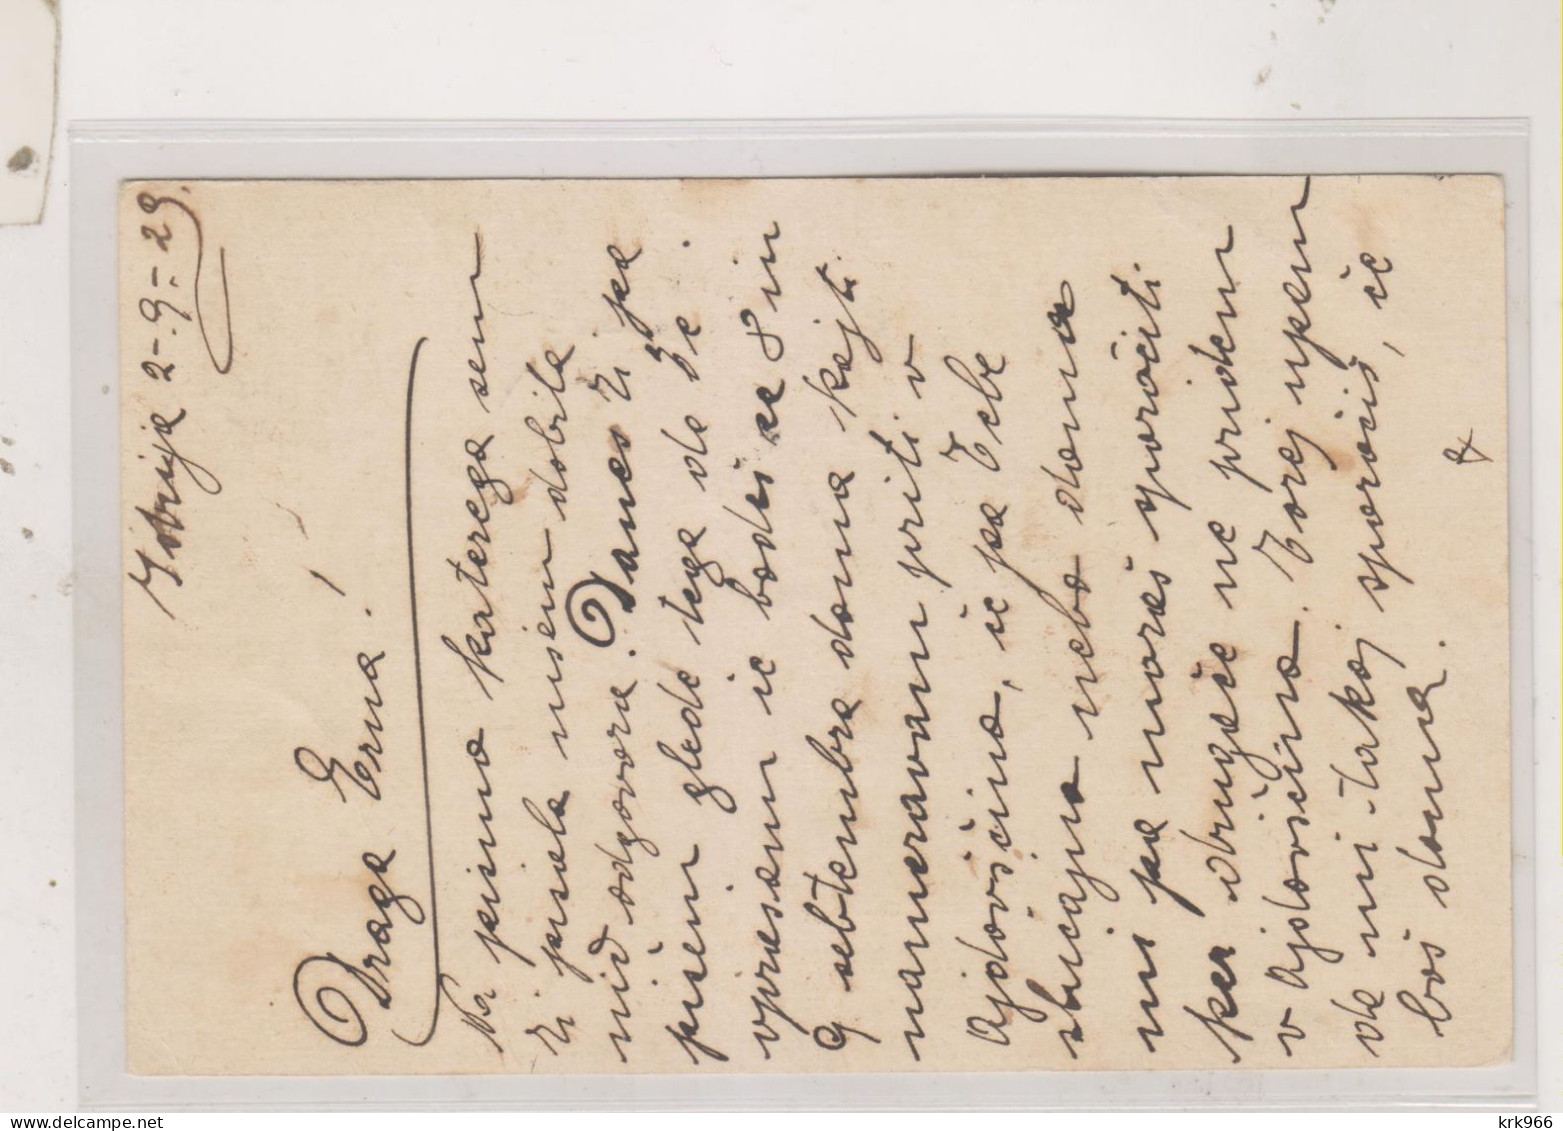 Idrija 2-9-29.
Draga Erna!
Na pismo katerega sem
Ti pisala nisem dobila
nič odgovora. Danes Ti pa
pišem glede tega da Te
vprašam ič bodeš se 8 in
9 sebtembra doma kajti
nameravam priti v
Ajdovščino, če pa Tebe
slučajno nebo doma
mi pa moraš sporočiti
ker drugače ne pridem
v Ajdovščino. Torej upam
da mi takoj sporočiš, če
boš doma.
krk966